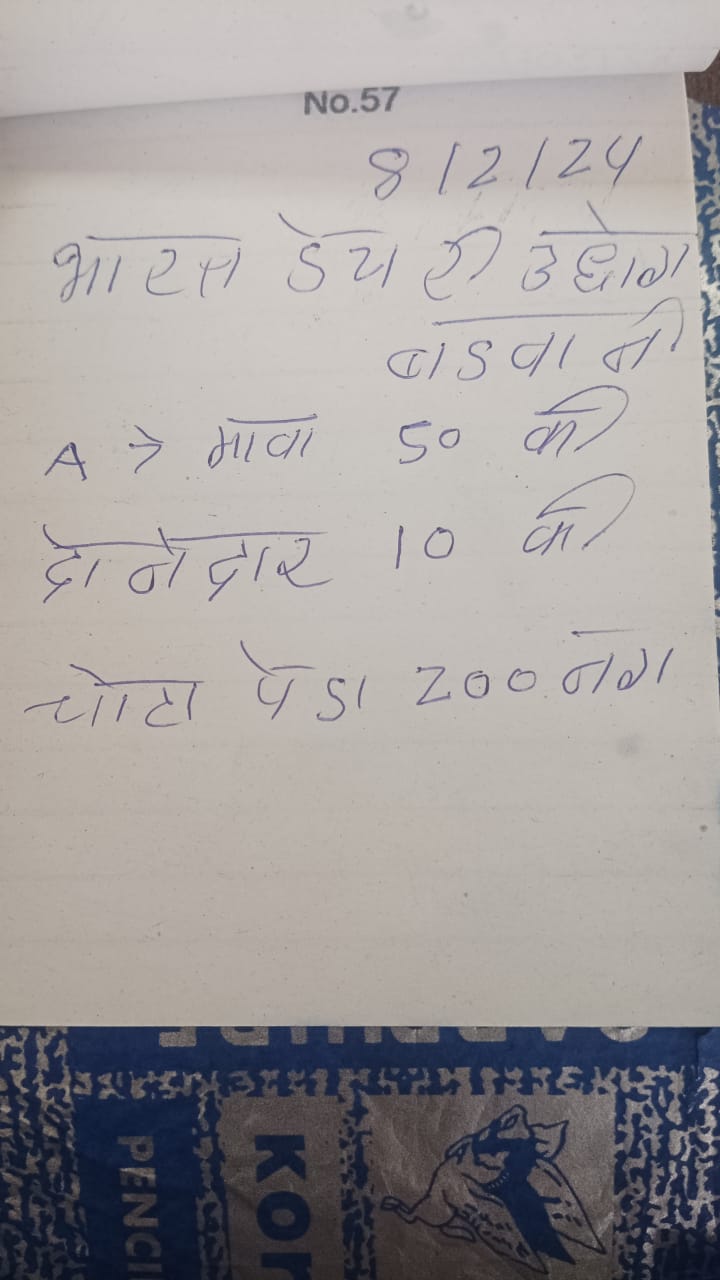 No.57
8/2/24
भारत डेयरी उधोग
बाडवानी
A → मावा 50 की
दानेदार 10 की
चोटा पेडा 200 नग
KOR
PENCI